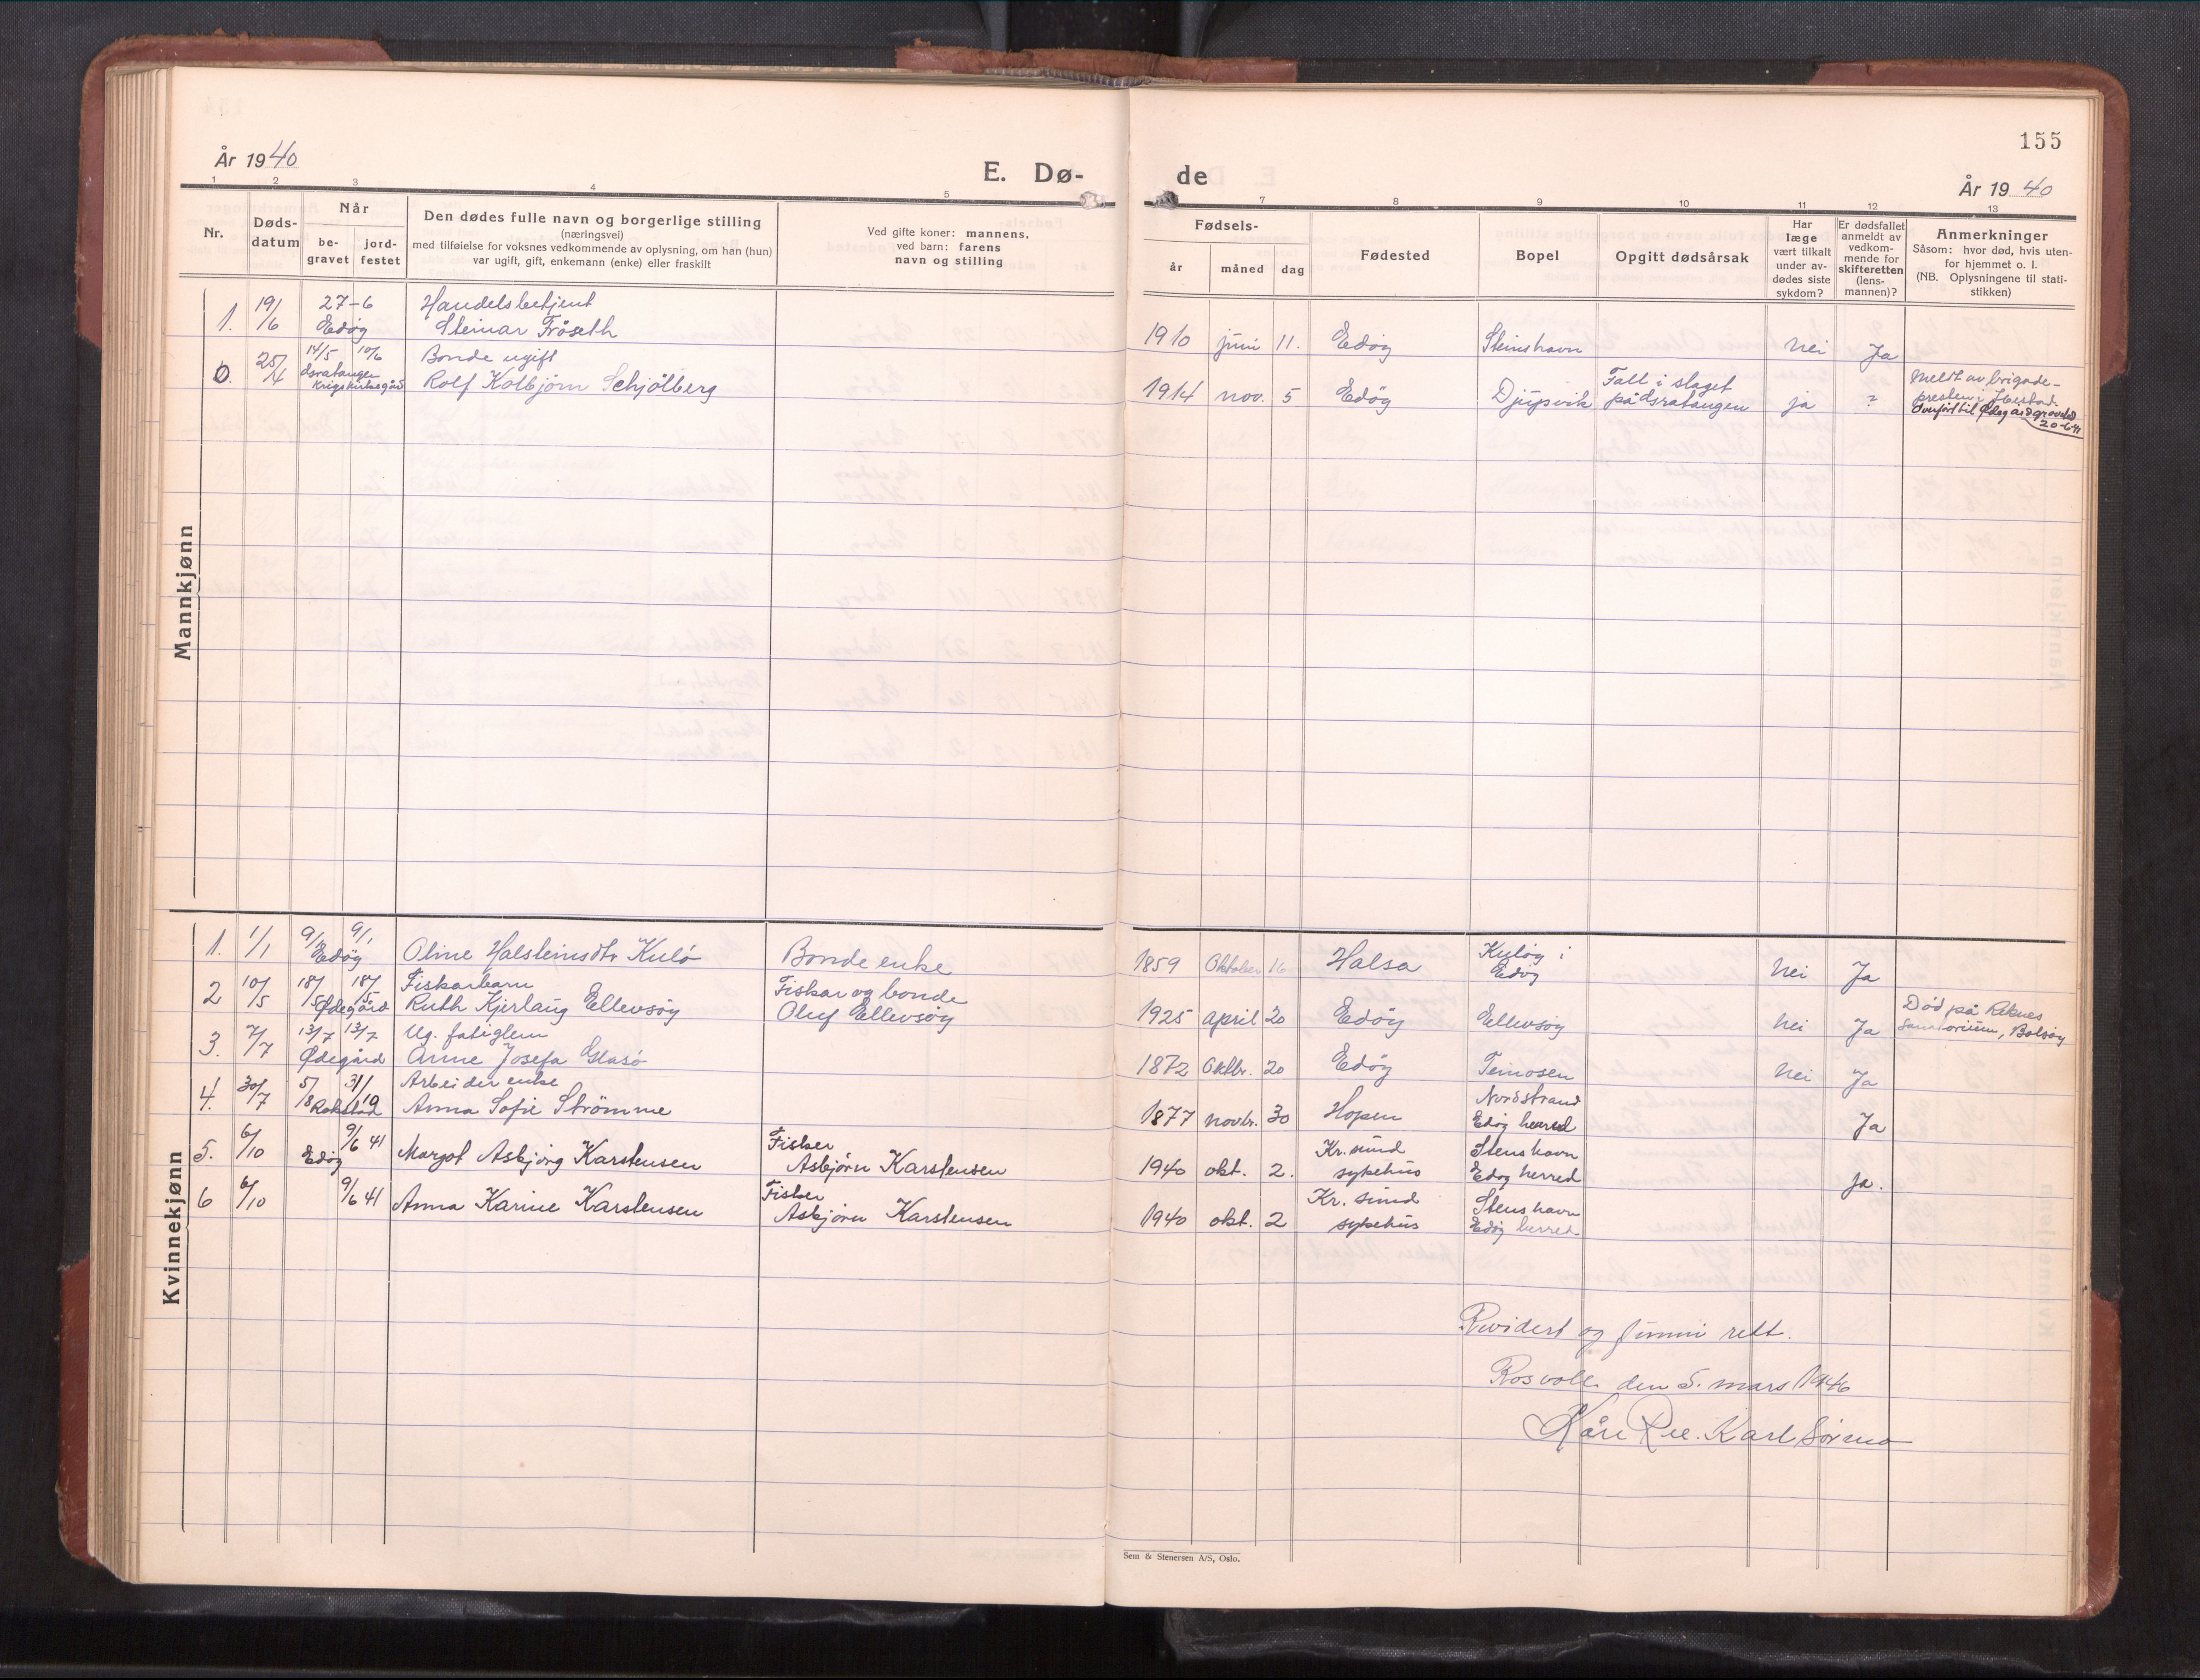 155
År 1940
E. Dø-
de
År 1940
1 2 3 4 5
7 8 9 10 11 12 13
Nr.
Døds-
datum
Når
be-
gravet
jord-
festet
Den dødes fulle navn og borgerlige stilling
(næringsvei)
med tilføielse for voksnes vedkommende av oplysning, om han (hun)
var ugift, gift, enkemann (enke) eller fraskilt
Ved gifte koner: mannens,
ved barn: farens
navn og stilling
Fødsels-
år
måned
dag
Fødested
Bopel
Opgitt dødsårsak
Har
læge
vært tilkalt
under av-
dødes siste
sykdom?
Er dødsfallet
anmeldt av
vedkom-
mende for
skifteretten
(lens-
mannen)?
Anmerkninger
Såsom: hvor død, hvis uten-
for hjemmet o. l.
(NB. Oplysningene til stati-
stikken)
Mannkjønn
19/6 27-6 Handelsbetjent
1. Edøy Steinar Frøseth 1910 juni 11. Edøy Steinshavn nei Ja
25/4 14/5 10/6 Bonde ugift Fall i slaget Meldt av brigade-
0. Gratangen Rolf Kolbjørn Schjølberg 1914 nov. 5 Edøy Djupsvik på Gratangen ja ? presten i
Krigskirkegård Overført til Ødegård gravsted
20-6-41
Kvinnekjønn
1. 1/1 9/1 9/1 Kuløy i
Edøy Oline Halsteinsdtr Kulø Bonde enke 1859 Oktober 16 Halsa Edøy Nei Ja
2 10/5 18/5 18/5 Fiskarbarn Fiskar og bonde Død på Reknes
Ødegård Ruth Kjerlaug Ellevsøy Oluf Ellevsøy 1925 april 20 Edøy Ellevsøy Nei Ja Sanatorium, Bolsøy
3. 7/7 13/7 13/7 Ug. fatiglem
Ødegård Anne Josefa Glasø 1872 Oktbr. 20 Edøy Teinosen Nei Ja
4. 30/7 5/8 31/10 Arbeider enke Nordstrand
Rokstad Anna Sofie Strömme 1877 novbr. 30 Hopen Edøy herred Ja
5. 6/10 9/6 41 Fisker Kr. sund Stenshavn
Edöy Margot Asbjørg Karstensen Asbjørn Karstensen 1940 okt. 2. sykehus Edøy herred ja.
6 6/10 9/6 41 Fisker Kr. sund Stenshavn
Anna Karine Karstensen Asbjørn Karstensen 1940 okt. 2 sykehus Edøy herred
Revidert og funni rett.
Rosvoll den 5. mars 1946
Kåre Ree. Karl Sørmo
Sem & Stenersen A/S, Oslo.